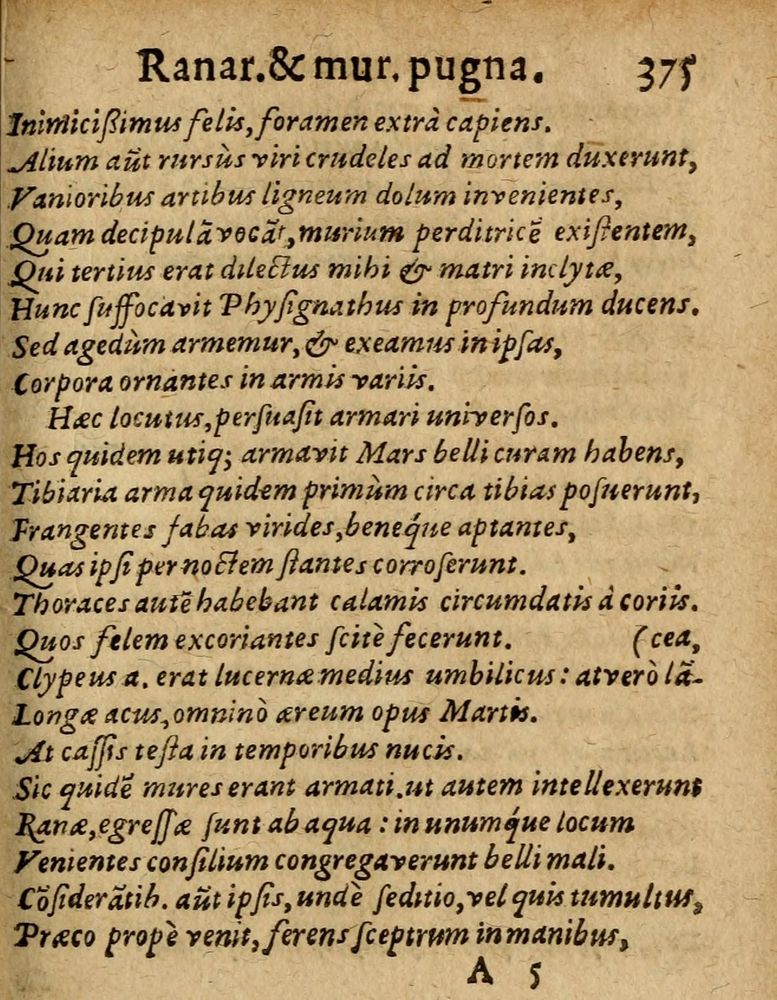 Ranar. & mur. pugna. 375
Inimicißimus felis, foramen extrà capiens.
Alium aũt rursùs viri crudeles ad mortem duxerunt,
Vanioribus artibus ligneum dolum invenientes,
Quam decipulã vocãt, murium perditricẽ exiſtentem,
Qui tertius erat dilectus mihi & matri inclytæ,
Hunc ſuffocavit Phyſignathus in profundum ducens.
Sed agedùm armemur, & exeamus in ipſas,
Corpora ornantes in armis variis.
Hæc locutus, perſuaſit armari univerſos.
Hos quidem utiq; armavit Mars belli curam habens,
Tibiaria arma quidem primùm circa tibias poſuerunt,
Frangentes fabas virides, beneq́ue aptantes,
Quas ipſi per noctem ſtantes corroſerunt.
Thoraces autẽ habebant calamis circumdatis à coriis.
Quos felem excoriantes ſcitè fecerunt. (cea,
Clypeus a. erat lucernæ medius umbilicus: at verò lã-
Longæ acus, omninò æreum opus Martis.
At caſſis teſta in temporibus nucis.
Sic quidẽ mures erant armati. ut autem intellexerunt
Ranæ, egreſſæ ſunt ab aqua: in unumq́ue locum
Venientes conſilium congregaverunt belli mali.
Cõſiderãtib. aũt ipſis, undè ſeditio, vel quis tumultus,
Præco propè venit, ferens ſceptrum in manibus,
A 5